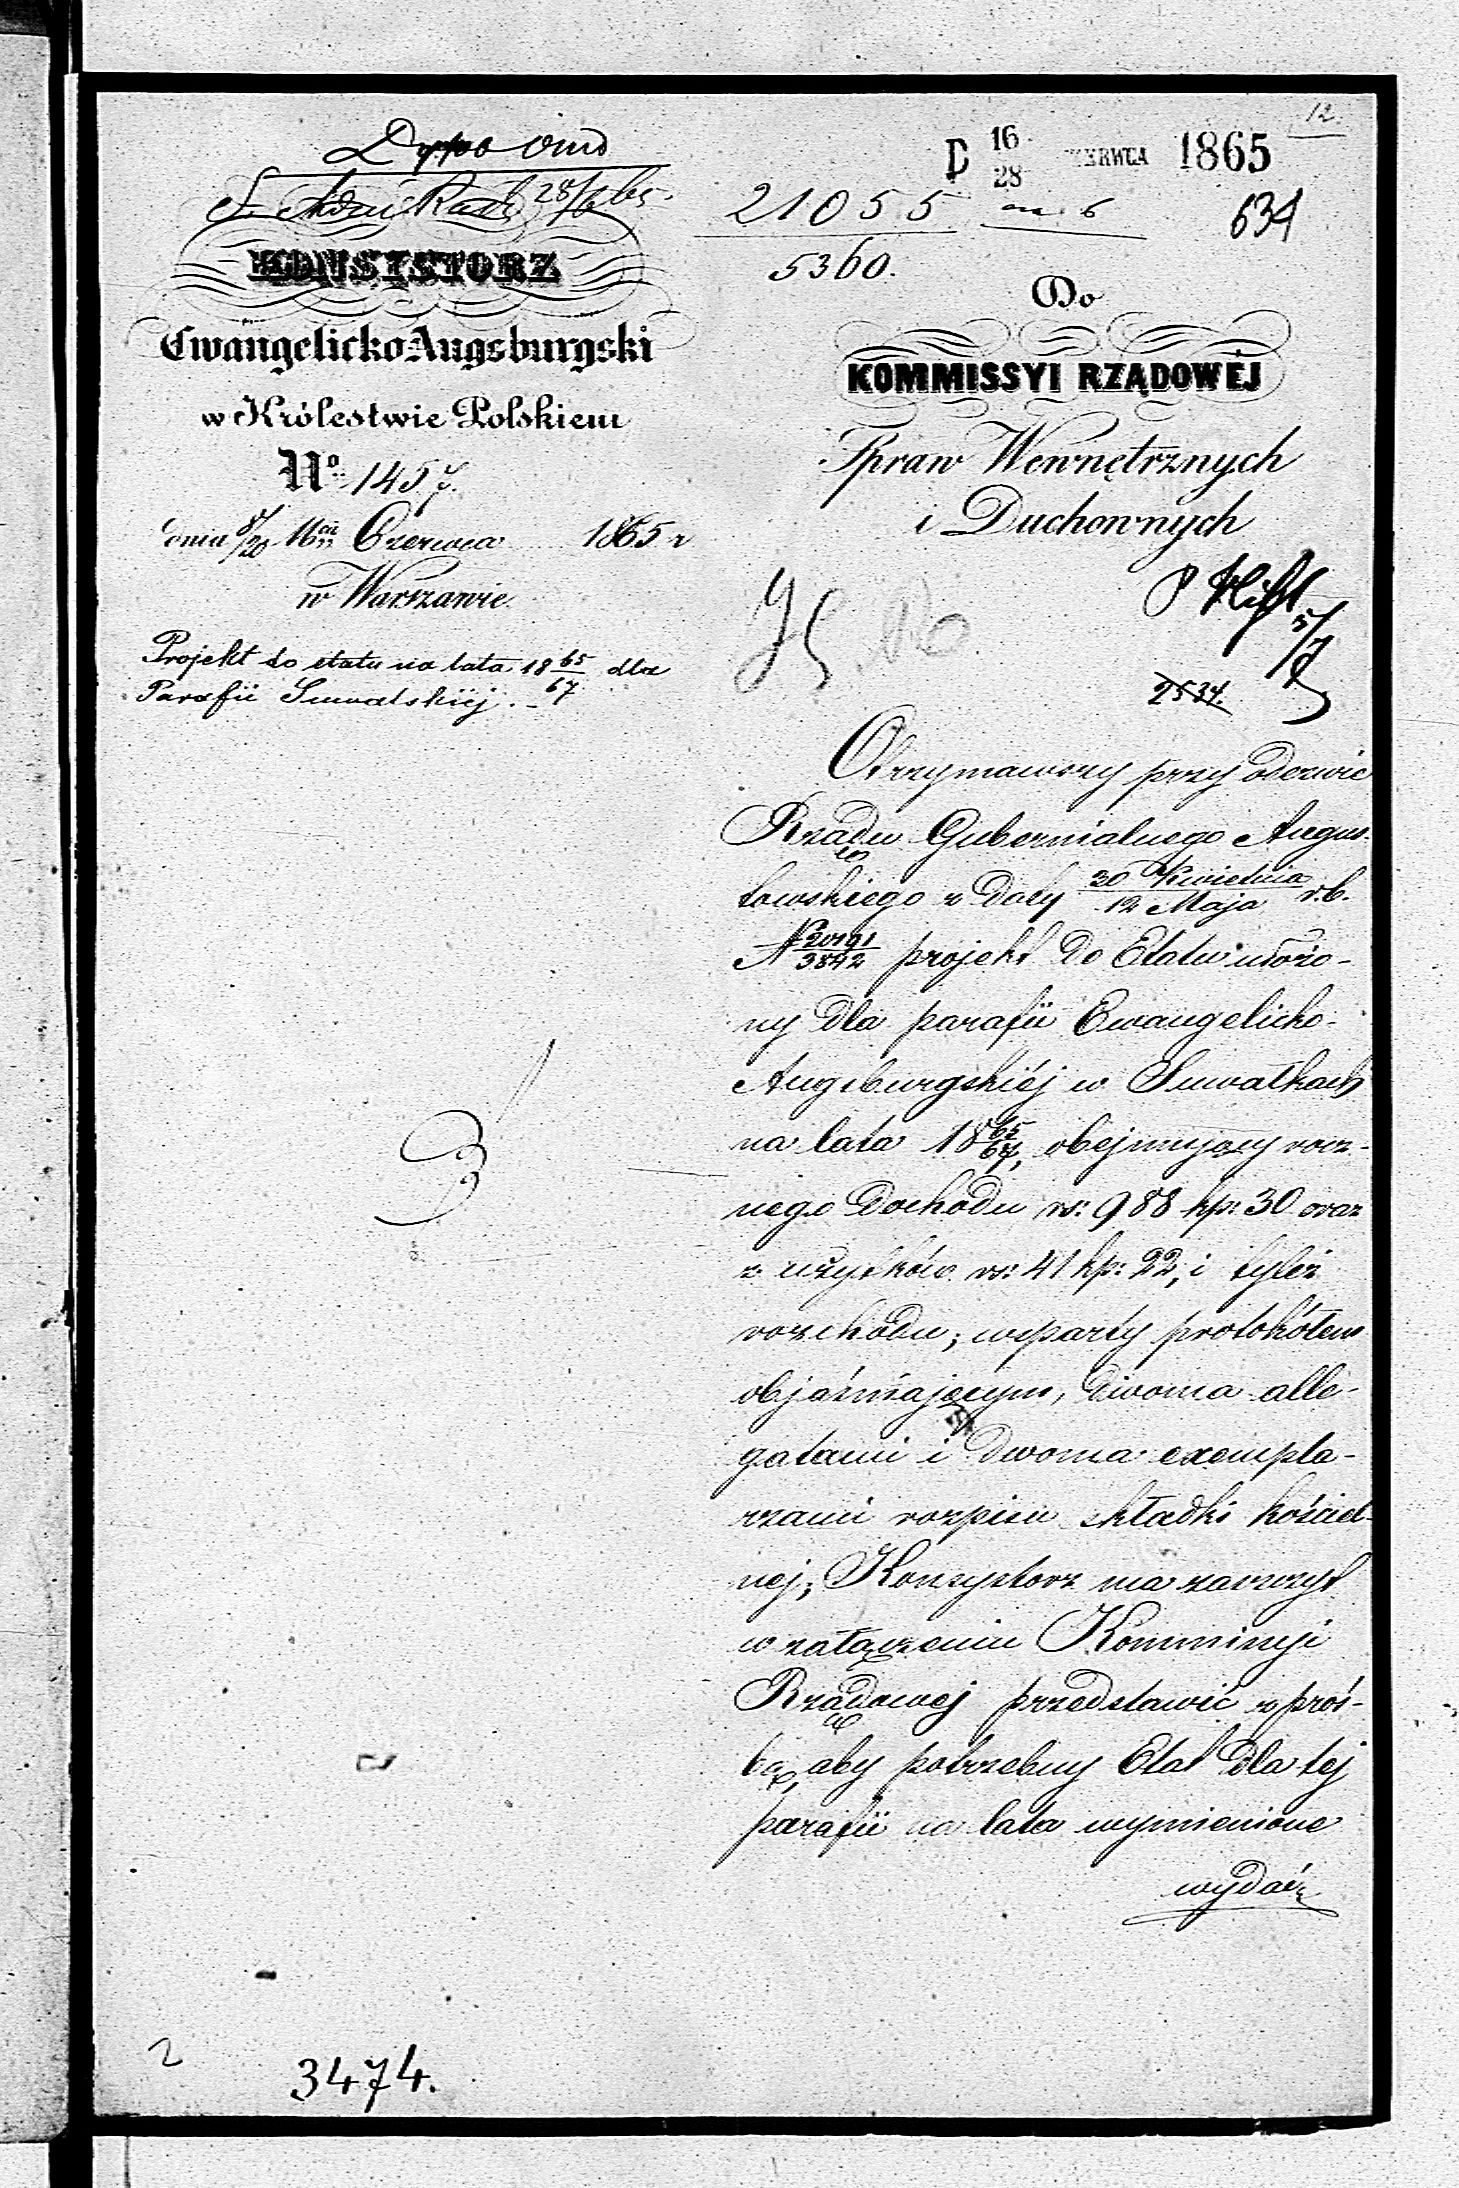 12.
D 16/28 CZERWCA 1865
28/6 65.
21055
5360.
634
KONSYSTORZ
Ewangelicko Augsburgski
w Królestwie Polskiem
No. 1457.
dnia 8/20 Mca Czerwca 1865 r
w Warszawie.
Projekt do etatu na lata 1865/67 dla
Parafii Suwalskiéj. -
Do
KOMMISSYI RZĄDOWÉJ
Spraw Wewnętrznych
i Duchownych
5/7
2534.
Otrzymawszy przy odezwie
Rządu Gubernialnego Augus-
towskiego z daty 30 Kwietnia/12 Maja r.b.
N 20191/3842 projekt do Etatu ułożo-
ny dla parafii Ewangelicko-
Augsburgskiéj w Suwałkach
na lata 1865/67, obejmujący rocz-
nego dochodu rs: 988 kp: 30 oraz
z użytków rs: 41 kp: 22, i tyleż
rozchodu; wsparty protokółem
objaśniającym, dwoma alle-
gatami i dwoma exempla-
rzami rozpisu składki kościel-
nej; Konsystorz ma zaszczyt
w załączeniu Kommissyi
Rządowej przedstawić z proś-
bą, aby potrzebny Etat dla tej
parafii na lata wymienione
wydać
2
3474.